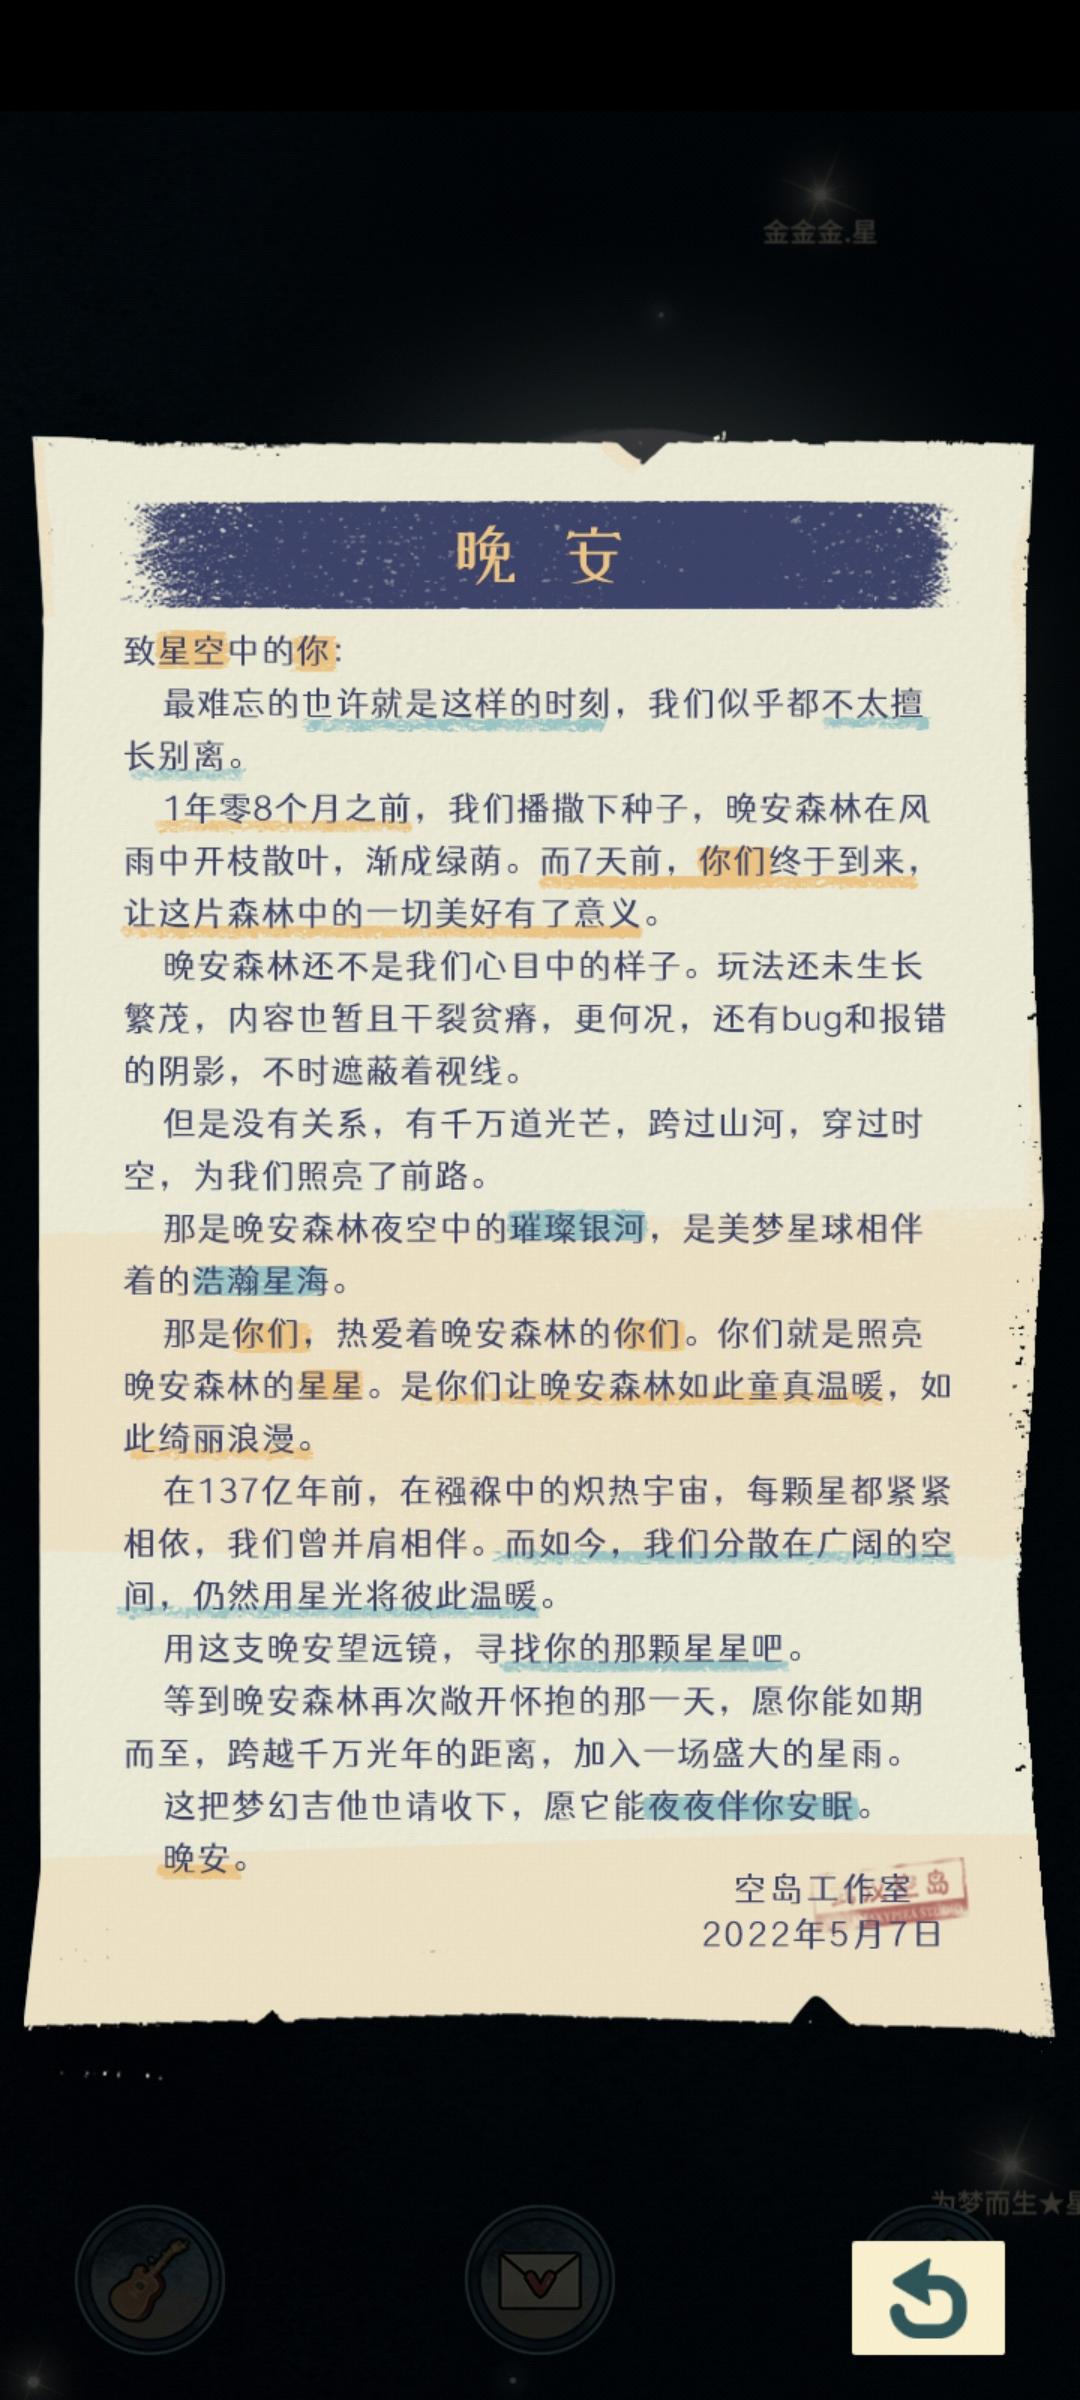 金金金.星
晚安
致星空中的你:
最难忘的也许就是这样的时刻，我们似乎都不太擅
长别离。
1年零8个月之前，我们播撒下种子，晚安森林在风
雨中开枝散叶，渐成绿荫。而7天前，你们终于到来，
让这片森林中的一切美好有了意义。
晚安森林还不是我们心目中的样子。玩法还未生长
繁茂，内容也暂且干裂贫瘠，更何况，还有bug和报错
的阴影，不时遮蔽着视线。
但是没有关系，有千万道光芒，跨过山河，穿过时
空，为我们照亮了前路。
那是晚安森林夜空中的璀璨银河，是美梦星球相伴
着的浩瀚星海。
那是你们，热爱着晚安森林的你们。你们就是照亮
晚安森林的星星。是你们让晚安森林如此童真温暖，如
此绮丽浪漫。
在137亿年前，在襁褓中的炽热宇宙，每颗星都紧紧
相依，我们曾并肩相伴。而如今，我们分散在广阔的空
间，仍然用星光将彼此温暖。
用这支晚安望远镜，寻找你的那颗星星吧。
等到晚安森林再次敞开怀抱的那一天，愿你能如期
而至，跨越千万光年的距离，加入一场盛大的星雨。
这把梦幻吉他也请收下，愿它能夜夜伴你安眠。
晚安。
空岛工作室
2022年5月7日
为梦而生★星